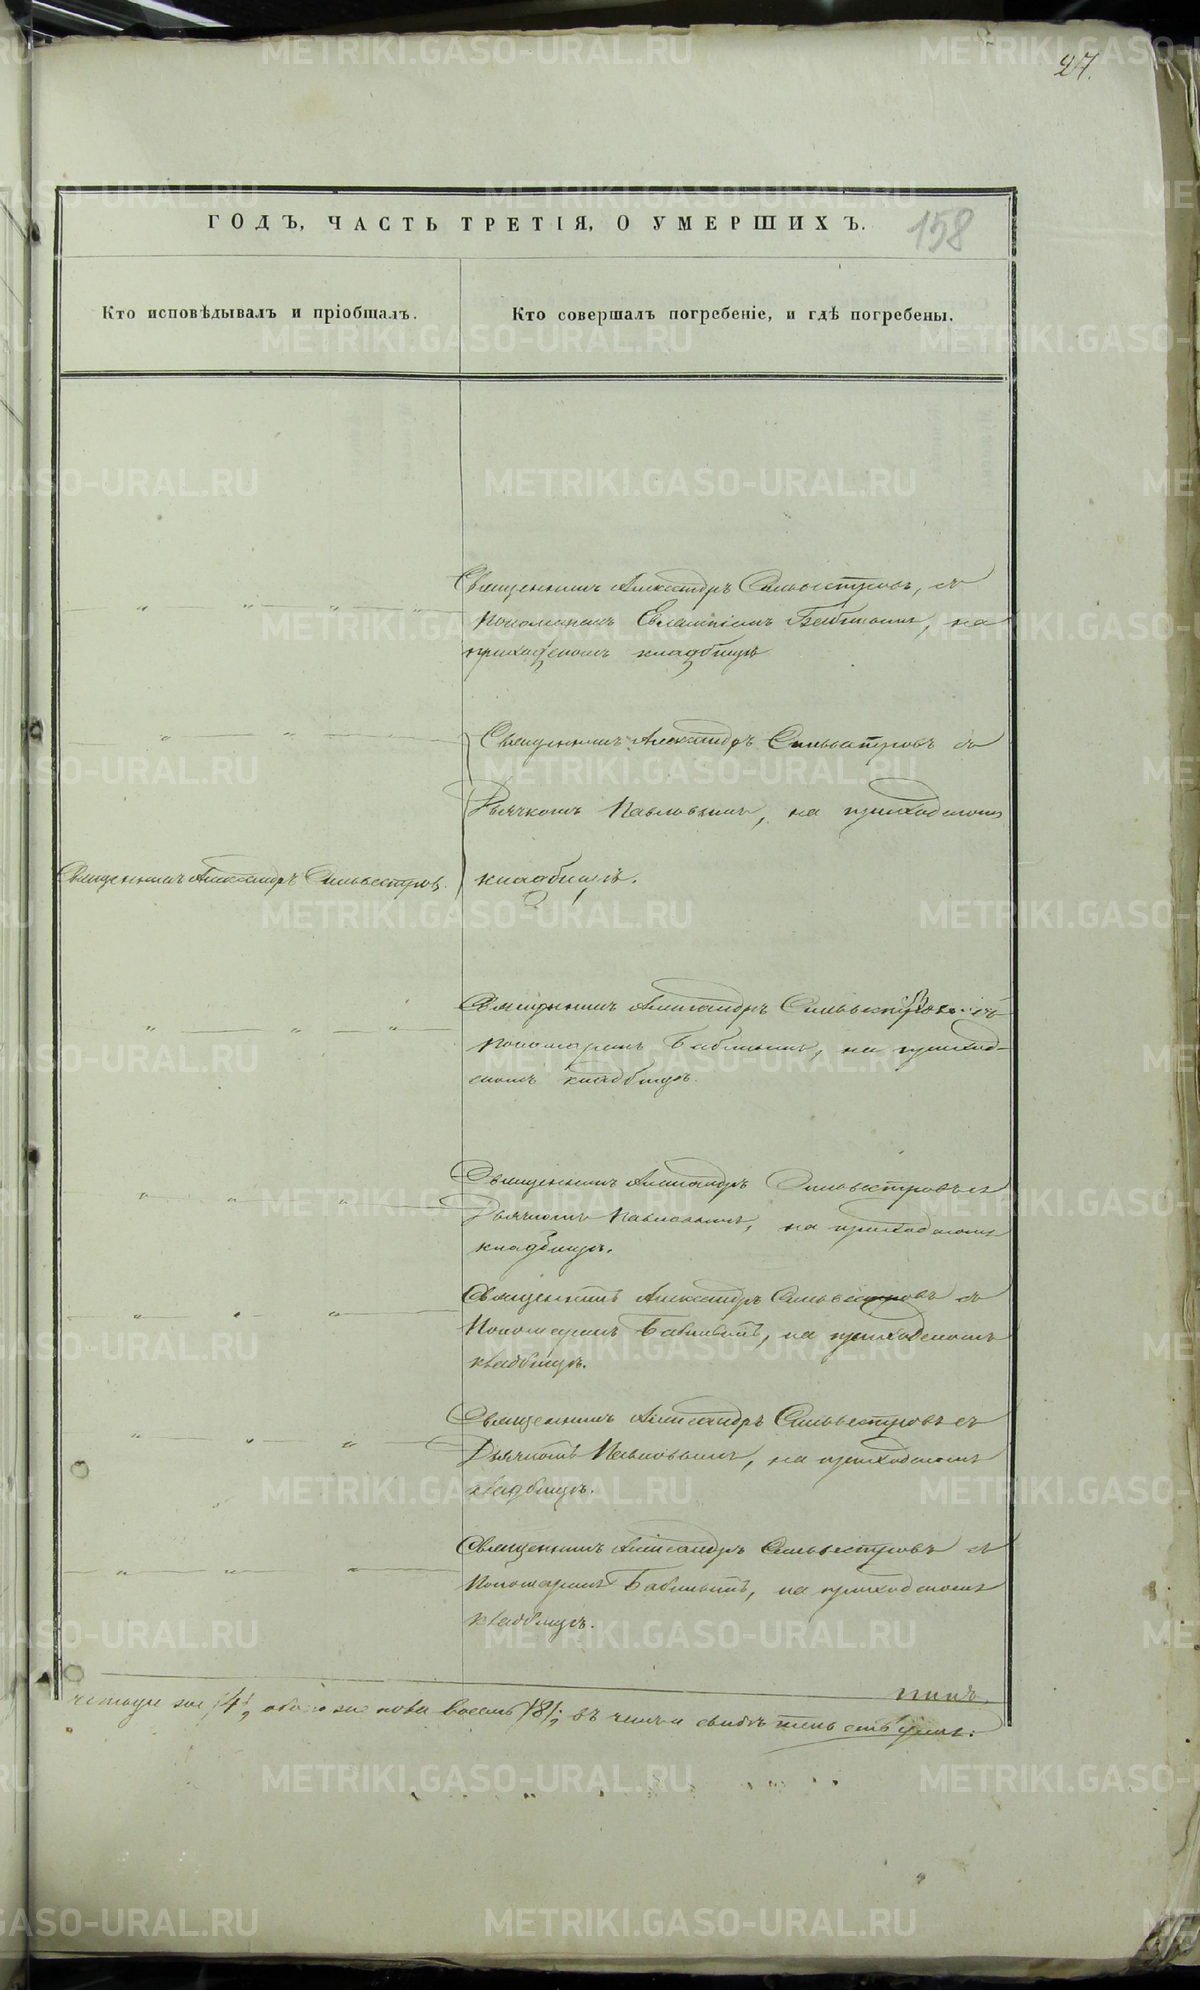 27.
ГОДЪ, ЧАСТЬ ТРЕТІЯ, О УМЕРШИХЪ.
158
Кто исповѣдывалъ и пріобщалъ.
Кто совершалъ погребеніе, и гдѣ погребены.
Священникъ Александръ Сильвестровъ, съ
Пономаремъ Евлампіемъ Бабинымъ, на
приходскомъ кладбищѣ
Священникъ Александръ Сильвестровъ съ
Дьячкомъ Павловымъ, на приходскомъ
Священникъ Александръ Сильвестров.
кладбищѣ.
Священникъ Александръ Сильвестровъ съ
Пономаремъ Бабинымъ, на приход-
скомъ кладбищѣ.
Священникъ Александръ Сильвестровъ съ
Дьячкомъ Павловымъ, на приходскомъ
кладбищѣ.
Священникъ Александръ Сильвестровъ съ
Пономаремъ Бабинымъ, на приходскомъ
кладбищѣ.
Священникъ Александръ Сильвестровъ съ
Дьячкомъ Павловымъ, на приходскомъ
кладбищѣ.
Священникъ Александръ Сильвестровъ съ
Пономаремъ Бабинымъ, на приходскомъ
кладбищѣ.
четыре /4/, обоего пола восемь /8/; въ чемъ и
METRIKI.GASO-URAL.RU